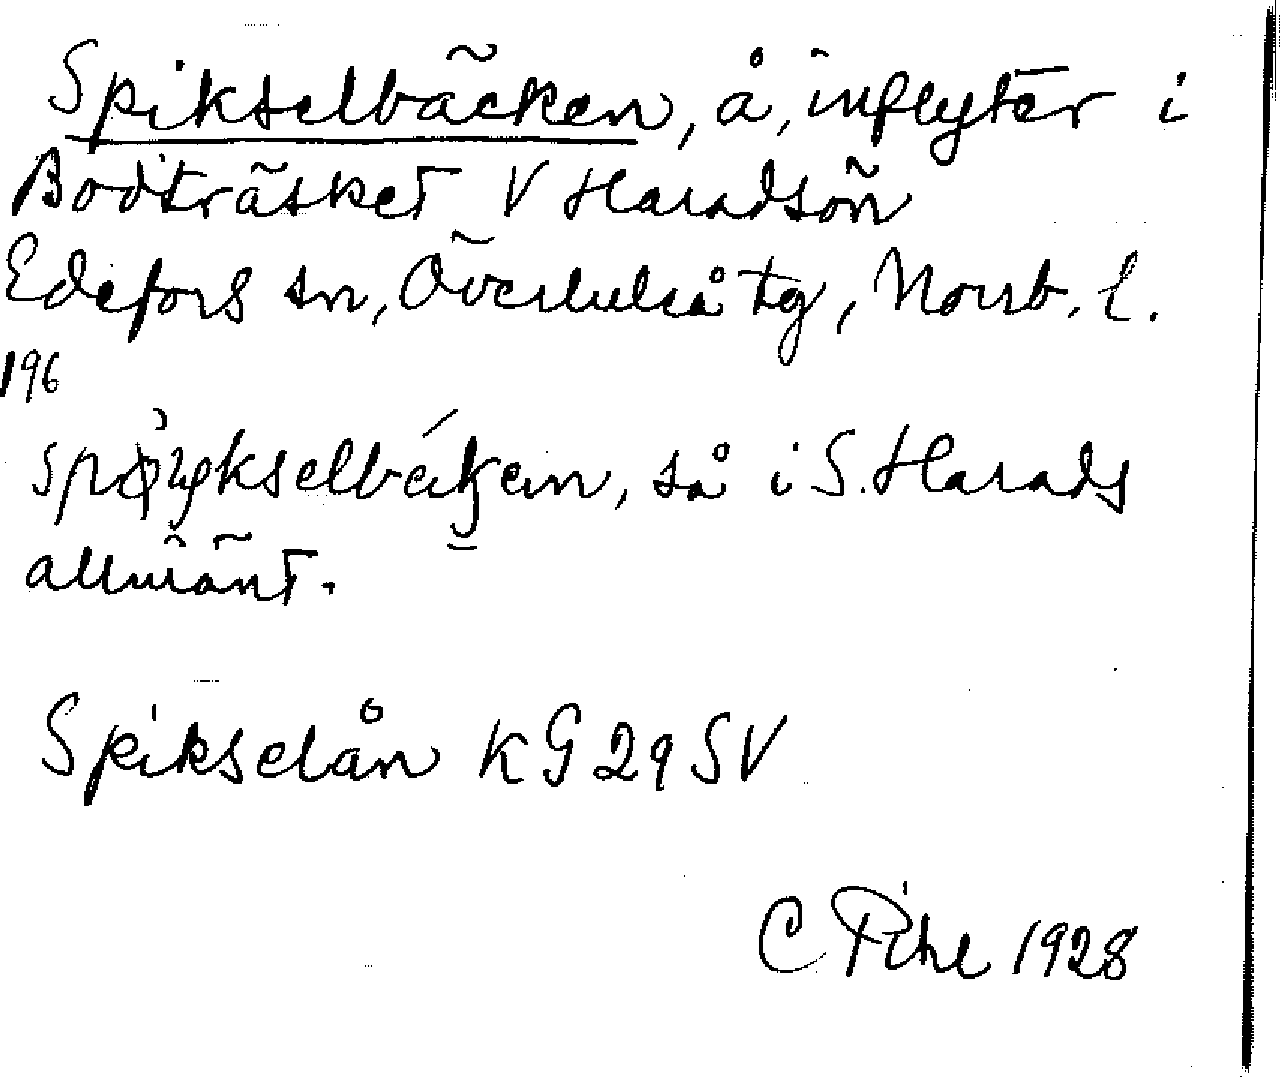 Spikselbäcken, å, inflyter i
Bodträsket V Haradsön
Edefors sn, Överluleå tg, Norrb. l.
196
så i S. Harads
allmänt.
Spikselån KG 29 SV
C Pihl 1928